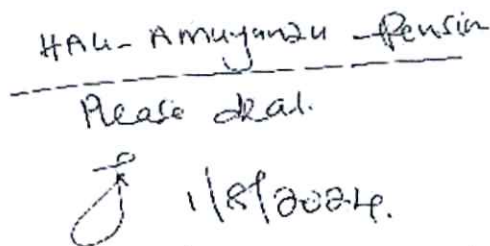 HAU- Amuyunzu -Pension
Please deal.
1/8/2024.